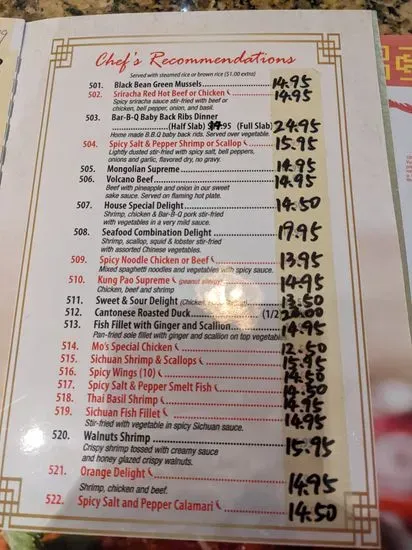 Chef's Recommendations
Served with steamed rice or brown rice ($1.00 extra)
501. Black Bean Green Mussels 14.95
502. Sriracha Red Hot Beef or Chicken 14.95
Spicy sriracha sauce stir-fried with beef or
chicken, bell pepper, onion, and basil.
503. Bar-B-Q Baby Back Ribs Dinner
(Half Slab) $14.95 (Full Slab) 24.95
Home made B.B.Q baby back ribs. Served over vegetable.
504. Spicy Salt & Pepper Shrimp or Scallop 15.95
Lightly dusted stir-fried with spicy salt, bell peppers,
onions and garlic, flavored dry, no gravy.
505. Mongolian Supreme 14.95
506. Volcano Beef 14.95
Beef with pineapple and onion in our sweet
sake sauce. Served on flaming hot plate.
507. House Special Delight 14.50
Shrimp, chicken & Bar-B-Q pork stir-fried
with vegetables in a very mild sauce.
508. Seafood Combination Delight 17.95
Shrimp, scallop, squid & lobster stir-fried
with assorted Chinese vegetables.
509. Spicy Noodle Chicken or Beef 13.95
Mixed spaghetti noodles and vegetables with spicy sauce.
510. Kung Pao Supreme (peanut allergy) 14.95
Chicken, beef and shrimp
511. Sweet & Sour Delight (Chicken, 13.50
512. Cantonese Roasted Duck (1/2) 20.00
513. Fish Fillet with Ginger and Scallion 14.95
Pan-fried sole fillet with ginger and scallion on top vegetable
514. Mo's Special Chicken 12.50
515. Sichuan Shrimp & Scallops 15.95
516. Spicy Wings (10) 14.50
517. Spicy Salt & Pepper Smelt Fish 14.50
518. Thai Basil Shrimp 14.95
519. Sichuan Fish Fillet 14.95
Stir-fried with vegetable in spicy Sichuan sauce.
520. Walnuts Shrimp 15.95
Crispy shrimp tossed with creamy sauce
and honey glazed crispy walnuts.
521. Orange Delight 14.95
Shrimp, chicken and beef.
522. Spicy Salt and Pepper Calamari 14.50